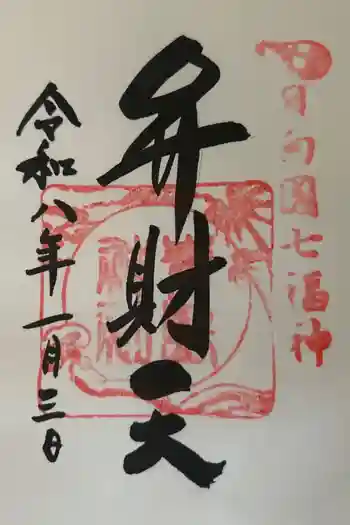 日向国七福神
弁財天
令和八年一月三日